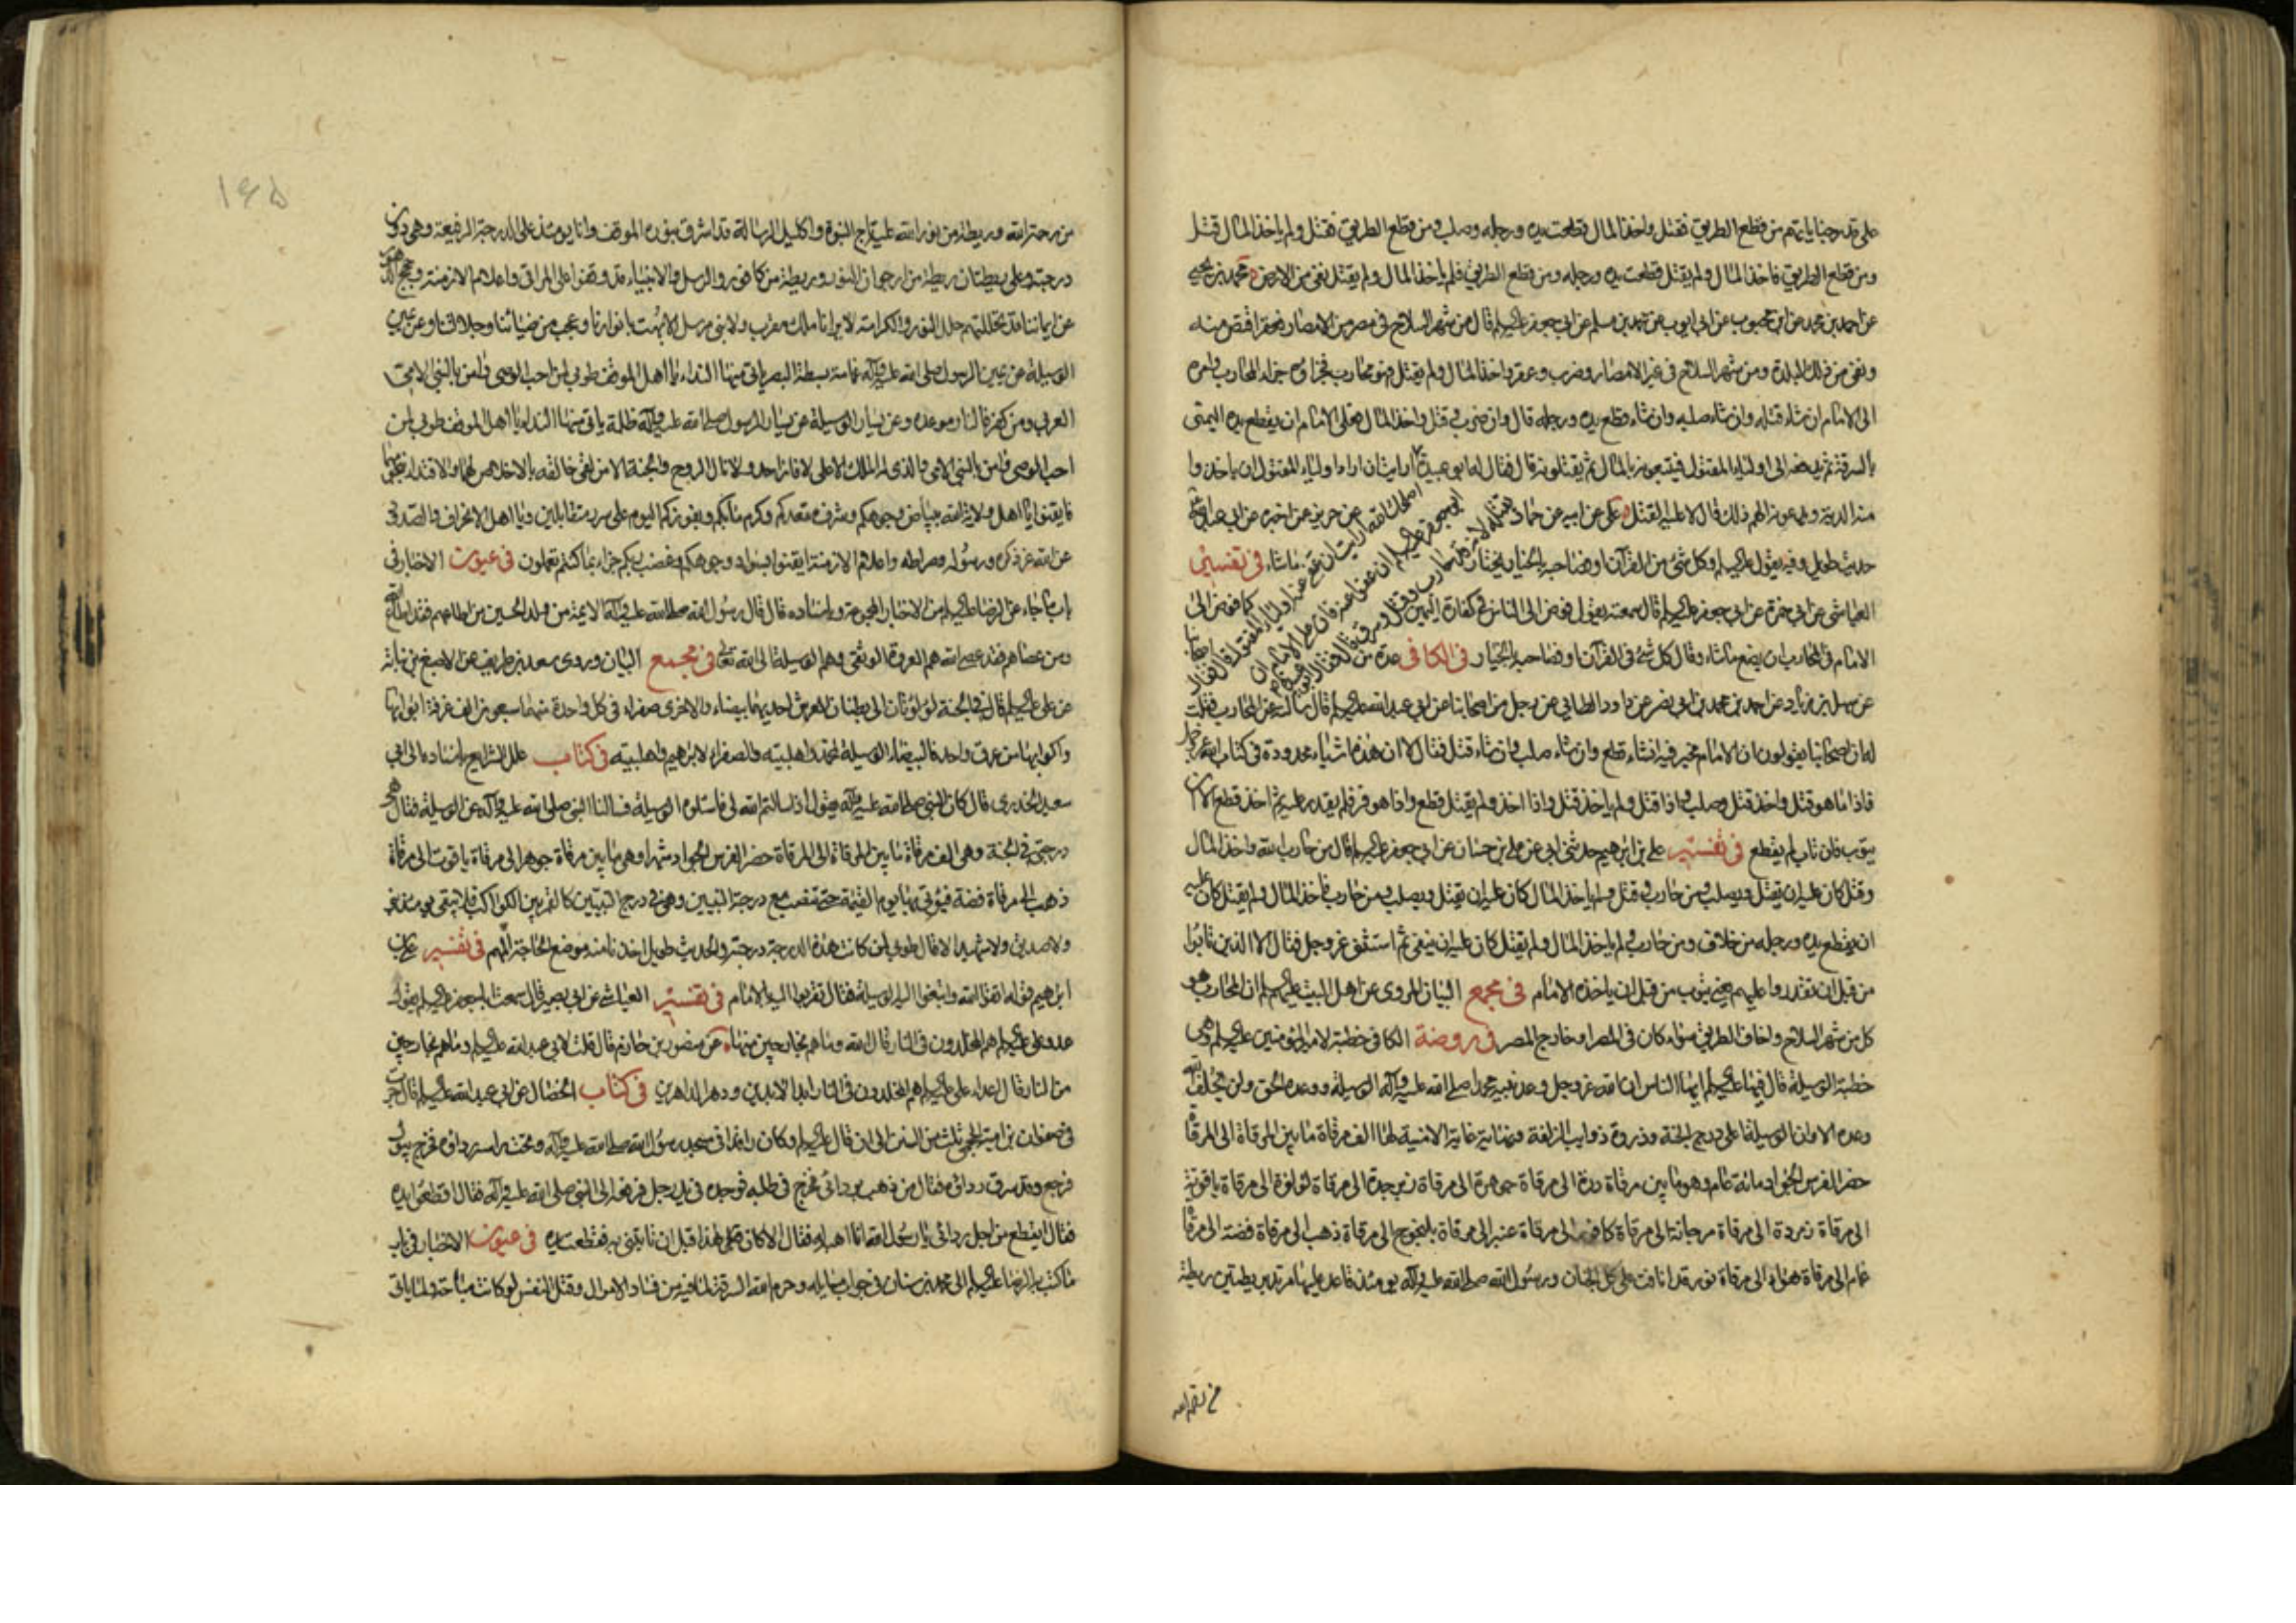 على قدر جنايتهم من قطع الطريق فقتل واخذ المال قطعت يده ورجله وصلب ومن قطع الطريق فقتل ولم ياخذ المال قتل
ومن قطع الطريق فاخذ المال ولم يقتل قطعت يده ورجله ومن قطع الطريق فلم ياخذ المال ولم يقتل نفى من الارض محمد بن يحيى
عن احمد بن محمد عن ابن محبوب عن ابى ايوب عن محمد بن مسلم عن ابى جعفر عليه السلام قال من شهر السلاح فى مصر من الامصار فعقر اقتص منه
ونفى من تلك البلدة ومن شهر السلاح فى غير الامصار وضرب وعقر واخذ المال ولم يقتل فهو محارب فجزاؤه جزاء المحارب وامره
الى الامام ان شاء قتله وان شاء صلبه وان شاء قطع يده ورجله قال وان ضرب وقتل واخذ المال فعلى الامام ان يقطع يده اليمنى
بالسرقة ثم يدفعه الى اولياء المقتول فيتبعونه بالمال ثم يقتلونه قال فقال له ابو عبيدة ارايت ان اراد اولياء المقتول ان ياخذوا
منه الدية ويدعونه الهم ذلك قال لا عليه القتل على عن ابيه عن حماد عن حريز عمن اخبره عن ابى عبد الله
اصلحك الله ارايت ان عفى عنه اولياء المقتول قال فقال
ابو جعفر عليه السلام ان عفوا عنه فان على الامام ان
يقتله لانه قد حارب وقتل وسرق قال فقال ابو عبيدة
حديث طويل وفيه يقول عليه السلام وكل شئ من القرآن او فصاحبه بالخيار يختار ما شاء فى تفسير
العياشى عن ابى حمزة عن ابى جعفر عليه السلام قال سمعته يقول فوض الى الناس فى كفارة اليمين كما فوض الى
الامام فى المحارب ان يصنع ما شاء وقال كل شئ فى القرآن او فصاحبه بالخيار فى الكافى عدة من اصحابنا
عن سهل بن زياد عن احمد بن محمد بن ابى نصر عن داود الطائى عن رجل من اصحابنا عن ابى عبد الله عليه السلام قال سالته عن المحارب فقلت
له ان اصحابنا يقولون ان الامام مخير فيه ان شاء قطع وان شاء صلب وان شاء قتل فقال لا ان هذه اشياء محدودة فى كتاب الله عز وجل
فاذا ما هو قتل واخذ قتل وصلب واذا قتل ولم ياخذ قتل واذا اخذ ولم يقتل قطع واذا هو فر فلم يقدر عليه ثم اخذ قطع الا ان
يتوب فان تاب لم يقطع فى تفسير على بن ابرهيم حدثنى ابى عن على بن حسان عن ابى جعفر عليه السلام قال من حارب الله واخذ المال
وقتل كان عليه ان يقتل ويصلب ومن حارب وقتل ولم ياخذ المال كان عليه ان يقتل ويصلب ومن حارب فاخذ المال ولم يقتل كان عليه
ان يقطع يده ورجله من خلاف ومن حارب ولم ياخذ المال ولم يقتل كان عليه ان ينفى ثم استثنى عز وجل فقال الا الذين تابوا
من قبل ان تقدروا عليهم يعنى يتوب من قبل ان ياخذه الامام فى مجمع البيان المروى عن اهل البيت عليهم السلام ان المحارب هو
كل من شهر السلاح واخاف الطريق سواء كان فى المصر او خارج المصر فى روضة الكافى خطبة لامير المؤمنين عليه السلام وهى
خطبة الوسيلة قال فيها عليه السلام ايها الناس ان الله عز وجل وعد نبيه محمدا صلى الله عليه وآله الوسيلة ووعده الحق ولن يخلف الله
وعده الا وان الوسيلة اعلى درج الجنة وذروة ذوايب الزلفة ونهاية غاية الامنية لها الف مرقاة ما بين المرقاة الى المرقاة
حضر الفرس الجواد مائة عام وهو ما بين مرقاة درة الى مرقاة جوهرة الى مرقاة زبرجدة الى مرقاة لؤلؤة الى مرقاة ياقوتة
الى مرقاة زمردة الى مرقاة مرجانة الى مرقاة كافور الى مرقاة عنبر الى مرقاة يلنجوج الى مرقاة ذهب الى مرقاة فضة الى مرقاة
غمام الى مرقاة هواء الى مرقاة نور قد انافت على كل الجنان ورسول الله صلى الله عليه وآله يومئذ قاعد عليها مرتد بريطتين ريطة
١٤٥
من رحمة الله وريطة من نور الله عليه تاج النبوة واكليل الرسالة قد اشرق بنوره الموقف وانا يومئذ على الدرجة الرفيعة وهى دون
درجته وعلى ريطتان ريطة من ارجوان النور وريطة من كافور والرسل والانبياء قد وقفوا على المراقى واعلام الازمنة وحجج الدهور
عن ايماننا قد تجللتهم حلل النور والكرامة لا يرانا ملك مقرب ولا نبى مرسل الا بهت بانوارنا وعجب من ضيائنا وجلالتنا وعن يمين
الوسيلة عن يمين الرسول صلى الله عليه وآله غمامة بسطة البصر ياتى منها النداء يا اهل الموقف طوبى لمن احب الوصى وامن بالنبى الامى
العربى ومن كفر فالنار موعده وعن يسار الوسيلة عن يسار الرسول صلى الله عليه وآله ظلة ياتى منها النداء يا اهل الموقف طوبى لمن
احب الوصى وامن بالنبى الامى والذى له الملك الاعلى لا فاز احد ولا نال الروح والجنة الا من لقى خالقه بالاخلاص لهما والاقتداء بنجومهما
فايقنوا يا اهل ولاية الله ببياض وجوهكم وشرف مقعدكم وكرم مآبكم وبفوزكم اليوم على سرر متقابلين ويا اهل الانحراف والصدود
عن الله عز ذكره ورسوله وصراطه واعلام الازمنة ايقنوا بسواد وجوهكم وغضب ربكم جزاء بما كنتم تعملون فى عيون الاخبار فى
باب ما جاء عن الرضا عليه السلام من الاخبار المجموعة وباسناده قال قال رسول الله صلى الله عليه وآله الائمة من ولد الحسين من اطاعهم فقد اطاع الله
ومن عصاهم فقد عصى الله هم العروة الوثقى وهم الوسيلة الى الله تعالى فى مجمع البيان وروى سعد بن طريف عن الاصبغ بن نباتة
عن على عليه السلام قال فى الجنة لؤلؤتان الى بطنان العرش احديهما بيضاء والاخرى صفراء فى كل واحدة منهما سبعون الف غرفة ابوابها
واكوابها من عرق واحد فالبيضاء الوسيلة لمحمد واهل بيته والصفراء لابرهيم واهل بيته فى كتاب علل الشرايع باسناده الى ابى
سعيد الخدرى قال كان النبى صلى الله عليه وآله يقول اذا سالتم الله لى فاسئلوه الوسيلة فسالنا النبى صلى الله عليه وآله عن الوسيلة فقال هى
درجتى فى الجنة وهى الف مرقاة ما بين المرقاة الى المرقاة حضر الفرس الجواد شهرا وهى ما بين مرقاة جوهر الى مرقاة ياقوت الى مرقاة
ذهب الى مرقاة فضة فيؤتى بها يوم القيمة حتى تنصب مع درجة النبيين وهى فى درج النبيين كالقمر بين الكواكب فلا يبقى يومئذ نبى
ولا صديق ولا شهيد الا قال طوبى لمن كانت هذه الدرجة درجته والحديث طويل اخذنا منه موضع الحاجة فى تفسير على بن
ابرهيم قوله اتقوا الله وابتغوا اليه الوسيلة فقال تقربوا اليه بالامام فى تفسير العياشى عن ابى بصير قال سمعت ابا جعفر عليه السلام يقول
عدو على عليه السلام هم المخلدون فى النار قال الله وما هم بخارجين منها عن منصور بن حازم قال قلت لابى عبد الله عليه السلام وما هم بخارجين
من النار قال اعداء على عليه السلام هم المخلدون فى النار ابد الابدين ودهر الداهرين فى كتاب الخصال عن ابى عبد الله عليه السلام قال جرت
فى صفوان بن امية الجمحى ثلث من السنن الى ان قال عليه السلام وكان راقدا فى مسجد رسول الله صلى الله عليه وآله وتحت راسه رداؤه فخرج يبول
فرجع وقد سرق رداؤه فقال من ذهب بردائى فخرج فى طلبه فوجده فى يد رجل فرفعه الى النبى صلى الله عليه وآله فقال اقطعوا يده
فقال ايقطع من اجل ردائى يا رسول الله انا اهبه له فقال الا كان قبل هذا قبل ان تاتينى به فقطعت يده فى عيون الاخبار فى باب
ما كتب به الرضا عليه السلام الى محمد بن سنان فى جواب مسايله وحرم الله السرقة لما فيه من فساد الاموال وقتل النفس لو كانت مباحة ولما ياتى